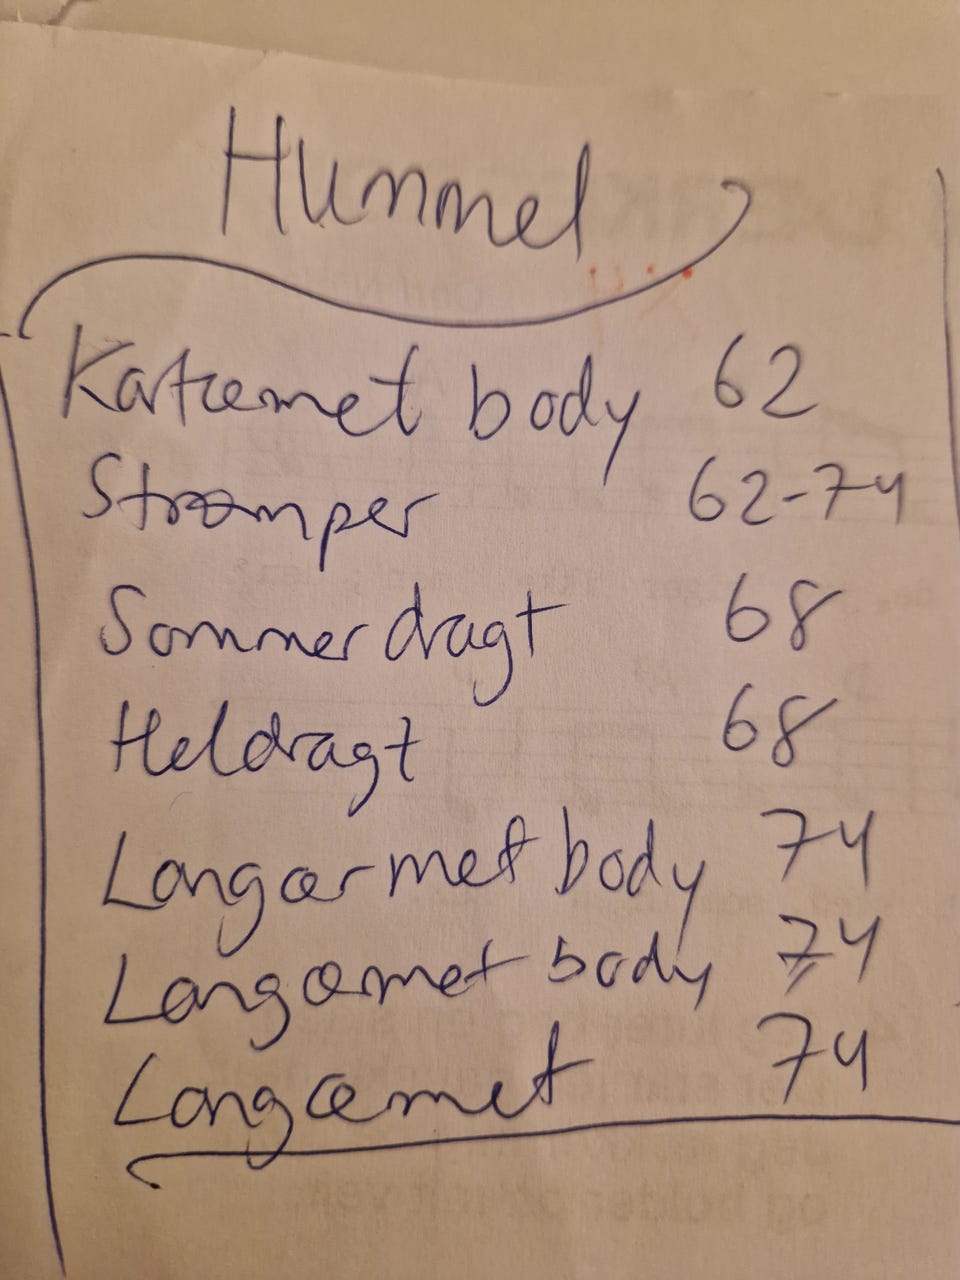 Hummel
Kortæmet body 62
Strømper 62-74
Sommerdragt 68
Heldragt 68
Langærmet body 74
Langæmet body 74
Langæmet 74